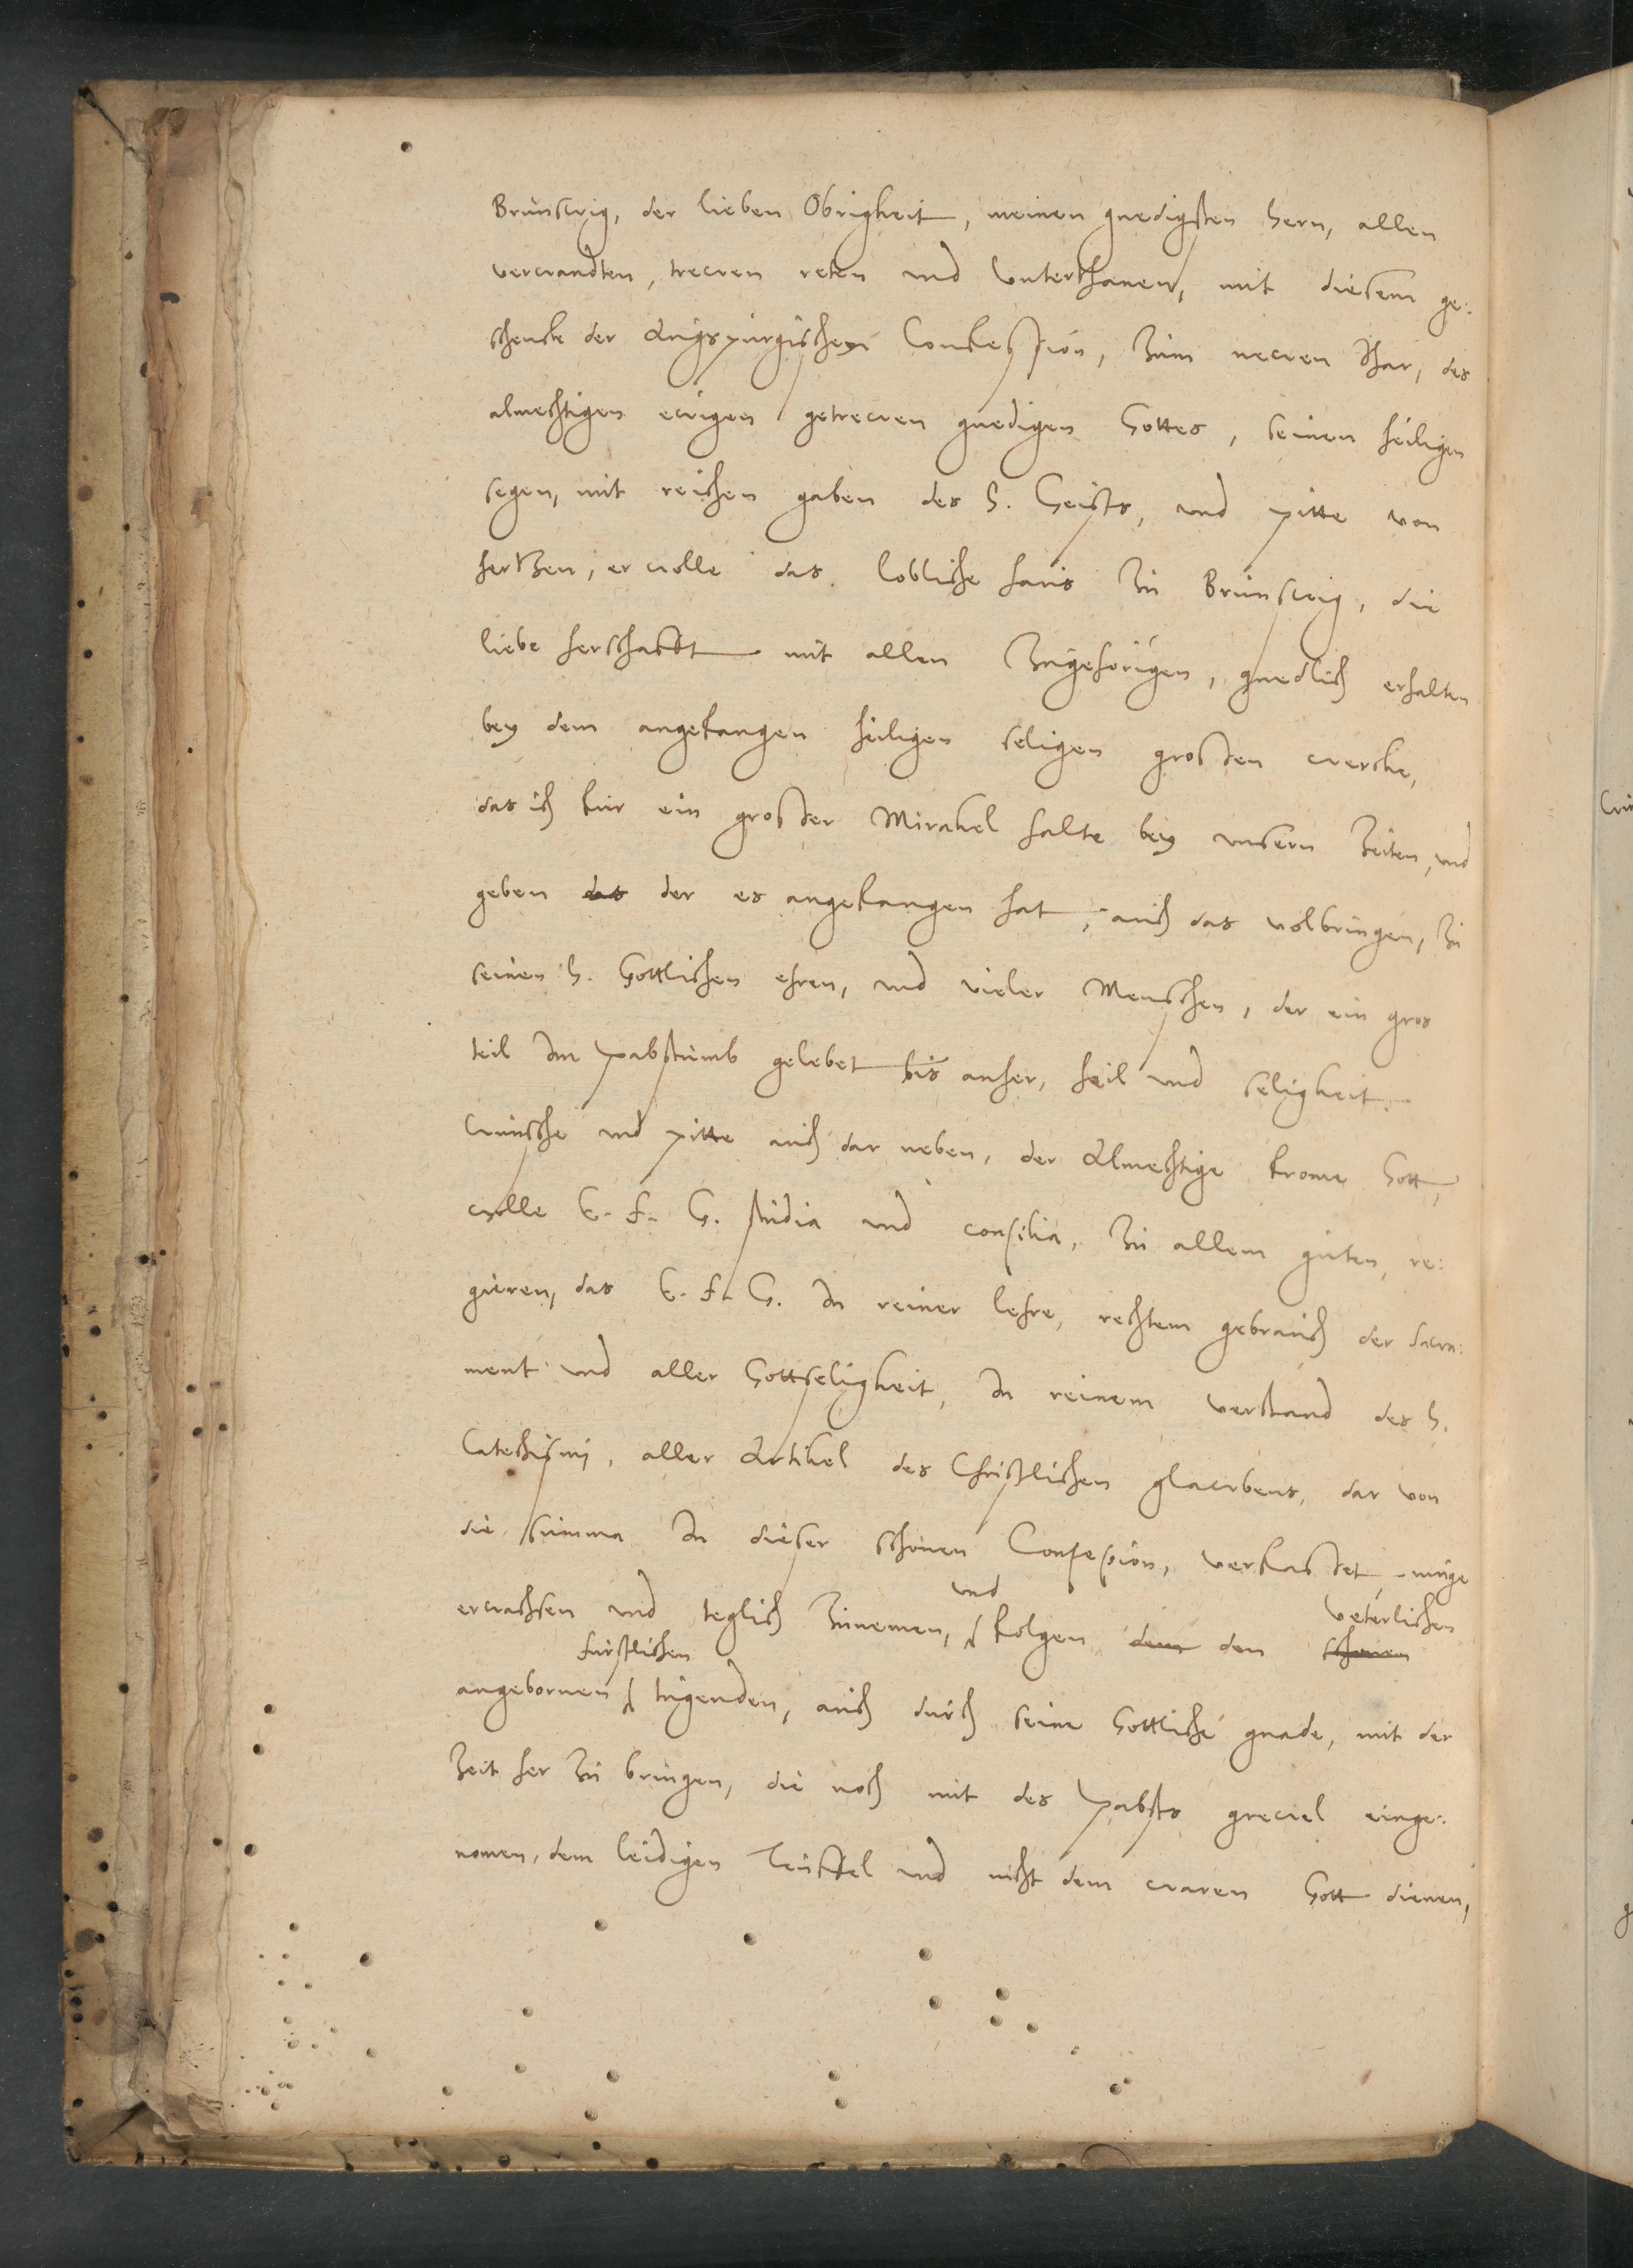 Brunswig, der lieben Obrigkeit, meinen gnedigsten hern, allen
verwandten, trewen reten und Unterthanen, mit diesem ge:
schenck der Augspurgischen Confession, Zum newen Jhar, des
almechtigen ewigen getrewen gnedigen Gottes, seinen heiligen
segen, mit reichen gaben des H. Geists, und pitte von
hertzen, er wolle das lobliche haus zu Brunswig, die
liebe herschafft mit allen Zugehorigen, gnedlich erhalten
bey dem angefangen heiligen seligen grossen wercke,
das ich fur ein grosser Mirakel halte bey unsern Zeiten, und
geben das der es angefangen hat, auch das volbringen, zu
seinen H. Gottlichen ehren, und vieler Menschen, der ein gros
teil Im pabstumb gelebet bis anher, heil und seligkeit.
Wunsche und pitte auch dar neben, der Almechtige frome Gott,
wolle E. F. G. studia und consilia, zu allem guten, re:
gieren, das E. F. G. In reiner lehre, rechtem gebrauch der sacra:
ment und aller Gottseligkeit, In reinem verstand des H.
Catechismj, aller Artikel des Christlichen glawbens, dar von
die summa In dieser schonen Confession, verfasset, muge
erwachsen und teglich Zunemen, und folgen dem den schonen veterlichen
angebornen furstlichen tugenden, auch durch seine Gottliche gnade, mit der
Zeit her zu bringen, die noch mit des pabsts grewel einge:
nomen, dem leidigen Teuffel und nicht dem waren Gott dienen,